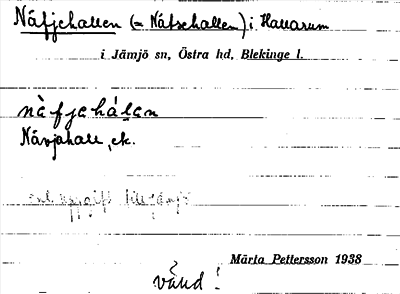 Näfjehallen (= Nätsehallen) i Hallarum
i Jämjö sn, Östra hd, Blekinge l.
nàfjehálan
Nävjahall, ek.
enl uppgift
Märta Pettersson 1938
vänd!